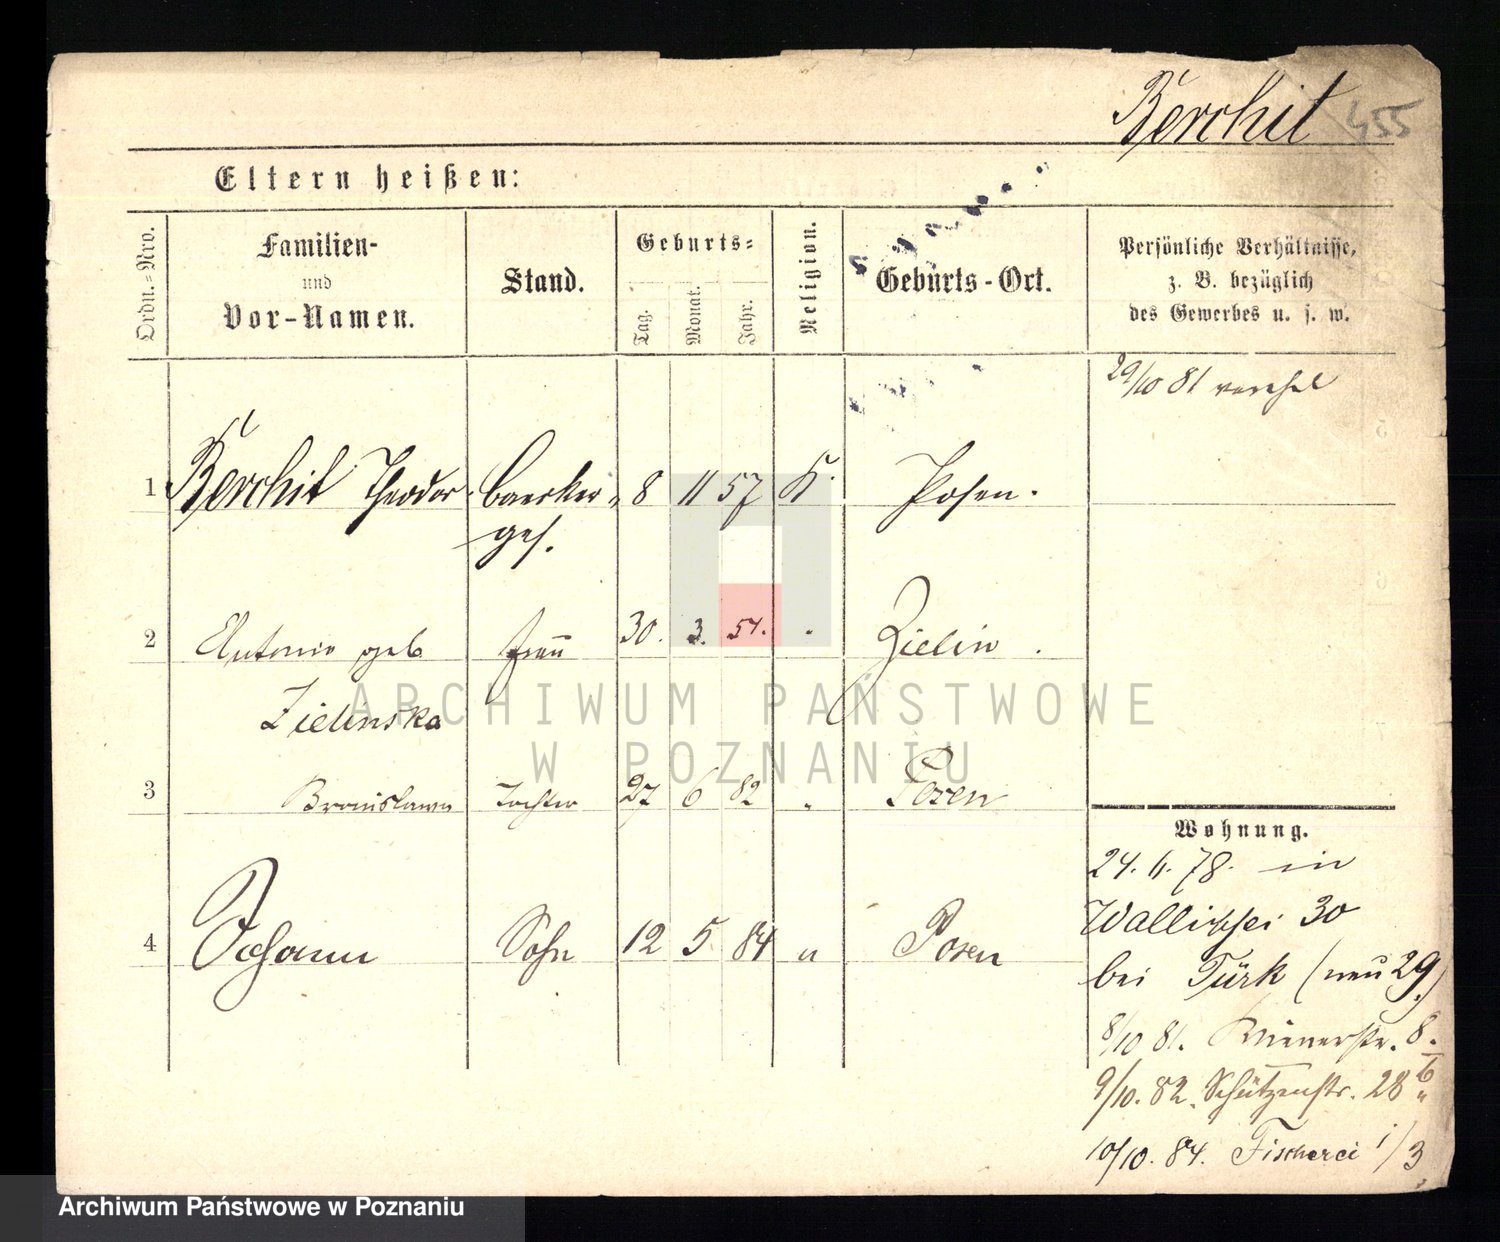 Berchit 455
Eltern heißen:
Ordn.=Nro.
Familien-
und
Vor-Namen.
Stand.
Geburts=
Tag.
Monat.
Jahr.
Religion.
Geburts-Ort.
Persönliche Verhältnisse,
z. B. bezüglich
des Gewerbes u. s. w.
29/10 81
1 Berchit Theodor Baecker 8 11 57 K. Posen.
ges.
2 Antonie geb Frau 30. 3. 54. " Zielin.
Zielinska
3 Bronislawa Tochter 27 6 82 " Posen
4 Johann Sohn 12 5 84 " Posen
Wohnung.
24. 11. 78. in
Wallischei 30
bei Türk (neu 29)
8/10 81. Wienerstr. 8.
9/10. 82. Schützenstr. 28 b
10/10. 84. Fischerei 1/3
ARCHIWUM PAŃSTWOWE
W POZNANIU
Archiwum Państwowe w Poznaniu